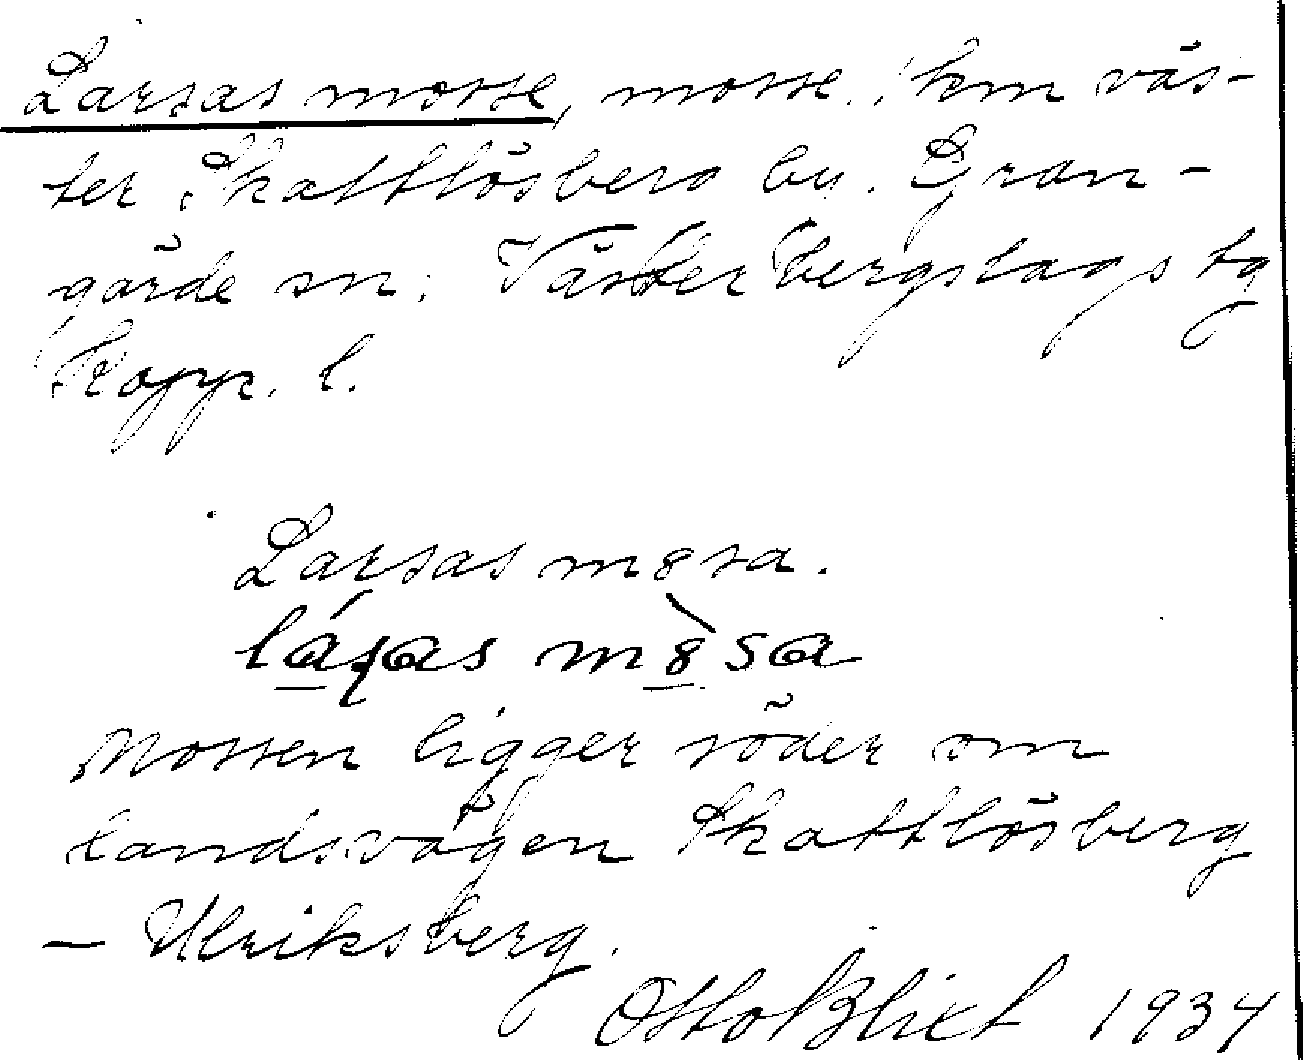 Larsas mosse, mosse. 1 km väs-
ter Skattlösberg by. Gran-
gärde sn; Västerbergslags tg
Kopp. l.
Larsas m8sa.
lásas m8̀sa
Mossen ligger söder om
landsvägen Skattlösberg
– Ulriksberg.
Otto Blixt 1934